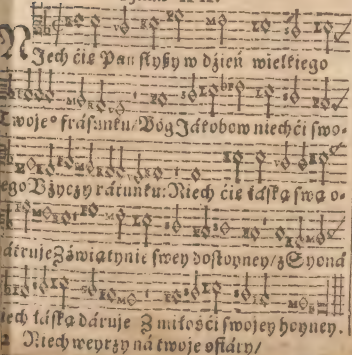 Niech ćię Pan słyßy w dźień wielkiego
Twoje° frásunku/ Bóg Jákobow niech ći swo-
ego Vżyczy rátunku: Niech ćię łáską swą o-
dáruje Z świątynie swey dostoyney/ z Syoná
niech łáską dáruje Z miłośći swojey hoyney.
2 Niech weyrzy ná twoje ofiáry/